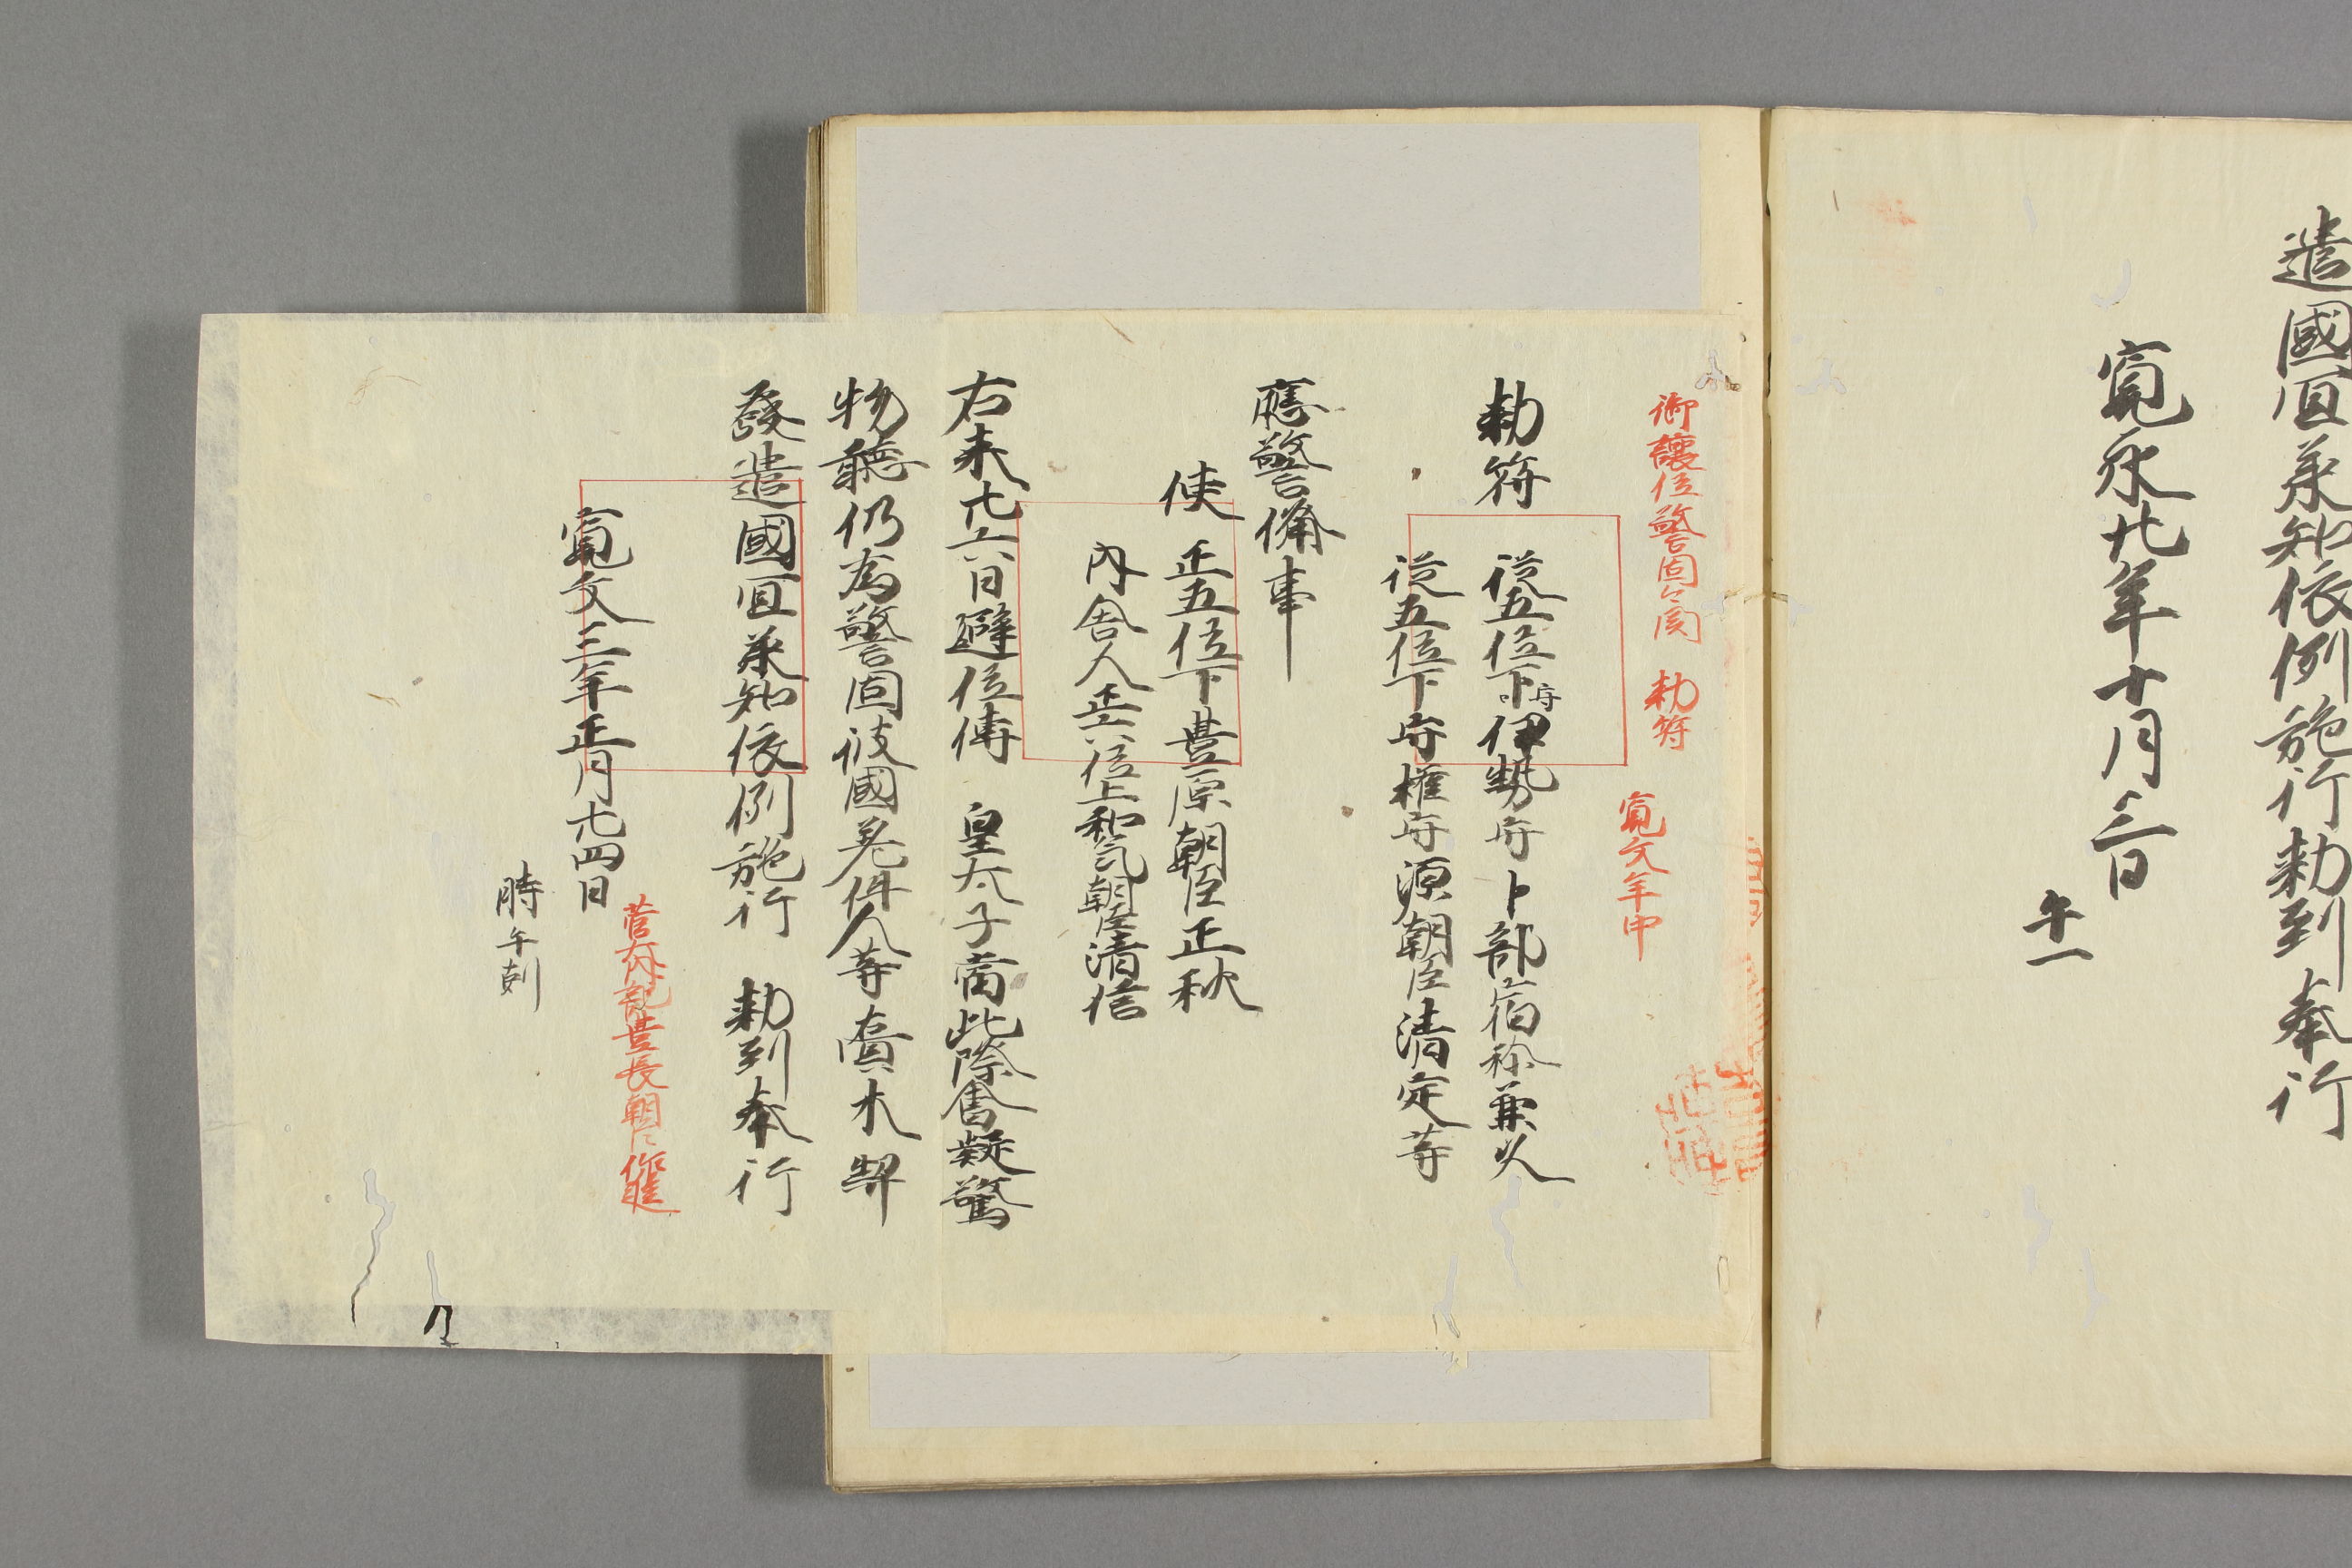 遣國宜承知依例施行勅到奉行
寛永廿年十月三日
午一
御讓位警固々関 勅符
寛文年中
勅符 從五位下守伊勢守卜部宿祢兼久
從五位下守權守源朝臣清定等
應警備事
使 正五位下豊原朝臣正秋
内舎人正六位上和氣朝臣清信
右来廿六日避位傳 皇太子當此際會疑驚
物聴仍為警固彼國差件人等賷木契
發遣國宜承知依例施行 勅到奉行
寛文三年正月廿四日
菅大内記豊長朝臣
時午剋